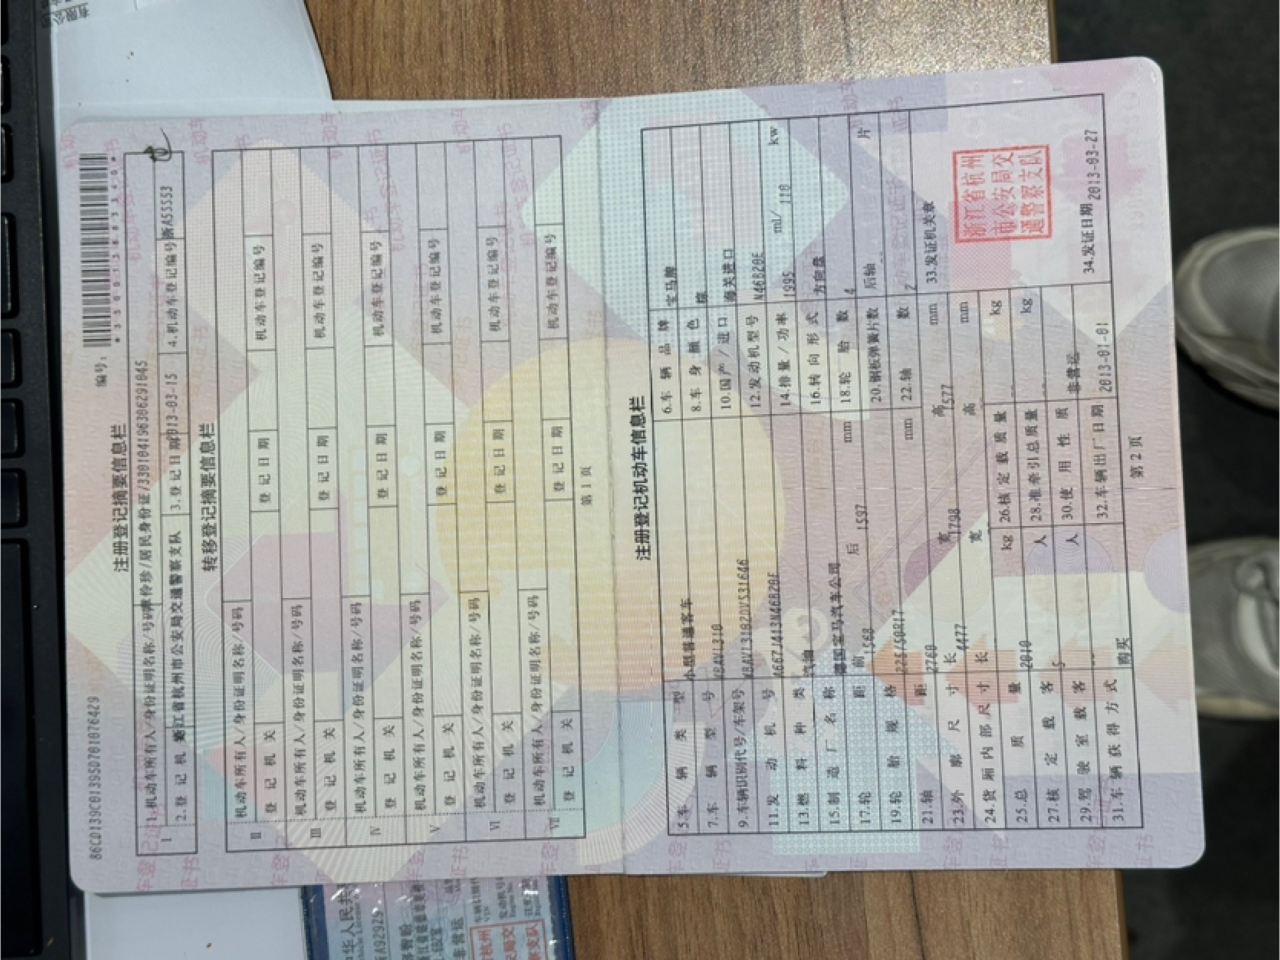 86CD139C01395D701076429
编号:
注册登记摘要信息栏
I
1.机动车所有人/身份证明名称/号码 /居民身份证/330104196306291045
2.登记机关 浙江省杭州市公安局交通警察支队 3.登记日期 2013-03-15 4.机动车登记编号 浙A55553
转移登记摘要信息栏
II 机动车所有人/身份证明名称/号码
登记机关 登记日期 机动车登记编号
III 机动车所有人/身份证明名称/号码
登记机关 登记日期 机动车登记编号
IV 机动车所有人/身份证明名称/号码
登记机关 登记日期 机动车登记编号
V 机动车所有人/身份证明名称/号码
登记机关 登记日期 机动车登记编号
VI 机动车所有人/身份证明名称/号码
登记机关 登记日期 机动车登记编号
VII 机动车所有人/身份证明名称/号码
登记机关 登记日期 机动车登记编号
第 1 页
注册登记机动车信息栏
5.车辆类型 小型普通客车 6.车辆品牌 宝马牌
7.车辆型号 8.车身颜色 棕
9.车辆识别代号/车架号 10.国产/进口 海关进口
11.发动机号 12.发动机型号 N46B20E
13.燃料种类 汽油 14.排量/功率 1995 ml/ 110 kw
15.制造厂名称 德国宝马汽车公司 16.转向形式 方向盘
17.轮距 前 1568 后 1597 mm 18.轮胎数 4
19.轮胎规格 225/50R17 20.钢板弹簧片数 后轴 片
21.轴距 2760 mm 22.轴数 2
23.外廓尺寸 长 4477 宽 1798 高 1577 mm
24.货厢内部尺寸 长 宽 高 mm
25.总质量 2010 kg 26.核定载质量 kg
27.核定载客 5 人 28.准牵引总质量 kg
29.驾驶室载客 -- 人 30.使用性质 非营运
31.车辆获得方式 购买 32.车辆出厂日期 2013-01-01
33.发证机关章
浙江省杭州
市公安局交
通警察支队
34.发证日期 2013-03-27
第 2 页
非营运